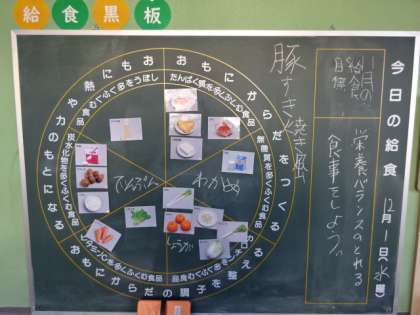 給食黒板
今日の給食
12月1日(水曜)
1月の
給食
目標
栄養バランスのとれる
食事をしよう。
豚すき焼き風
おもにからだをつくる
おもにからだの調子を整える
おもに熱や力のもとになる
たんぱく質を多くふくむ食品
無機質を多くふくむ食品
ビタミンCを多くふくむ食品
炭水化物を多くふくむ食品
しぼうを多くふくむ食品
でんぷん
わかめ
しょうが